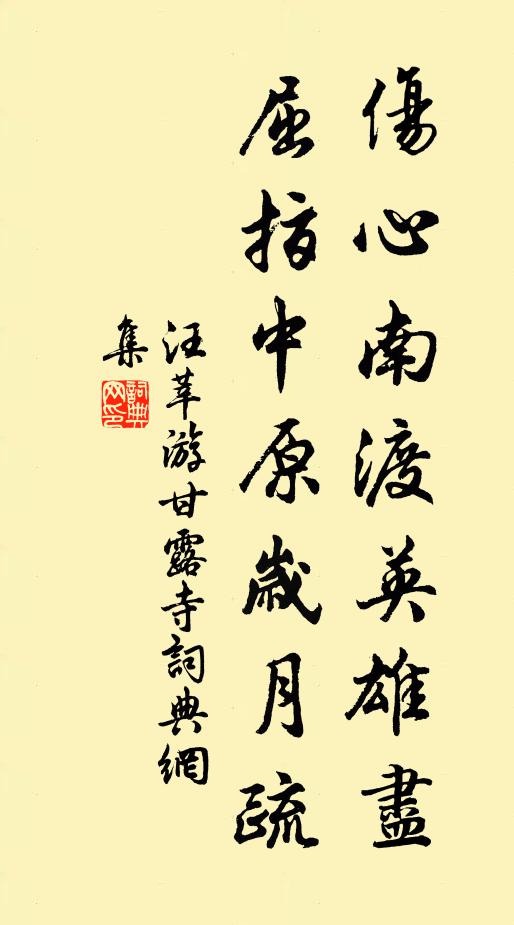 傷心南渡英雄盡
屈指中原歲月疏
汪莘游甘露寺詞典網
集
詞典
网印